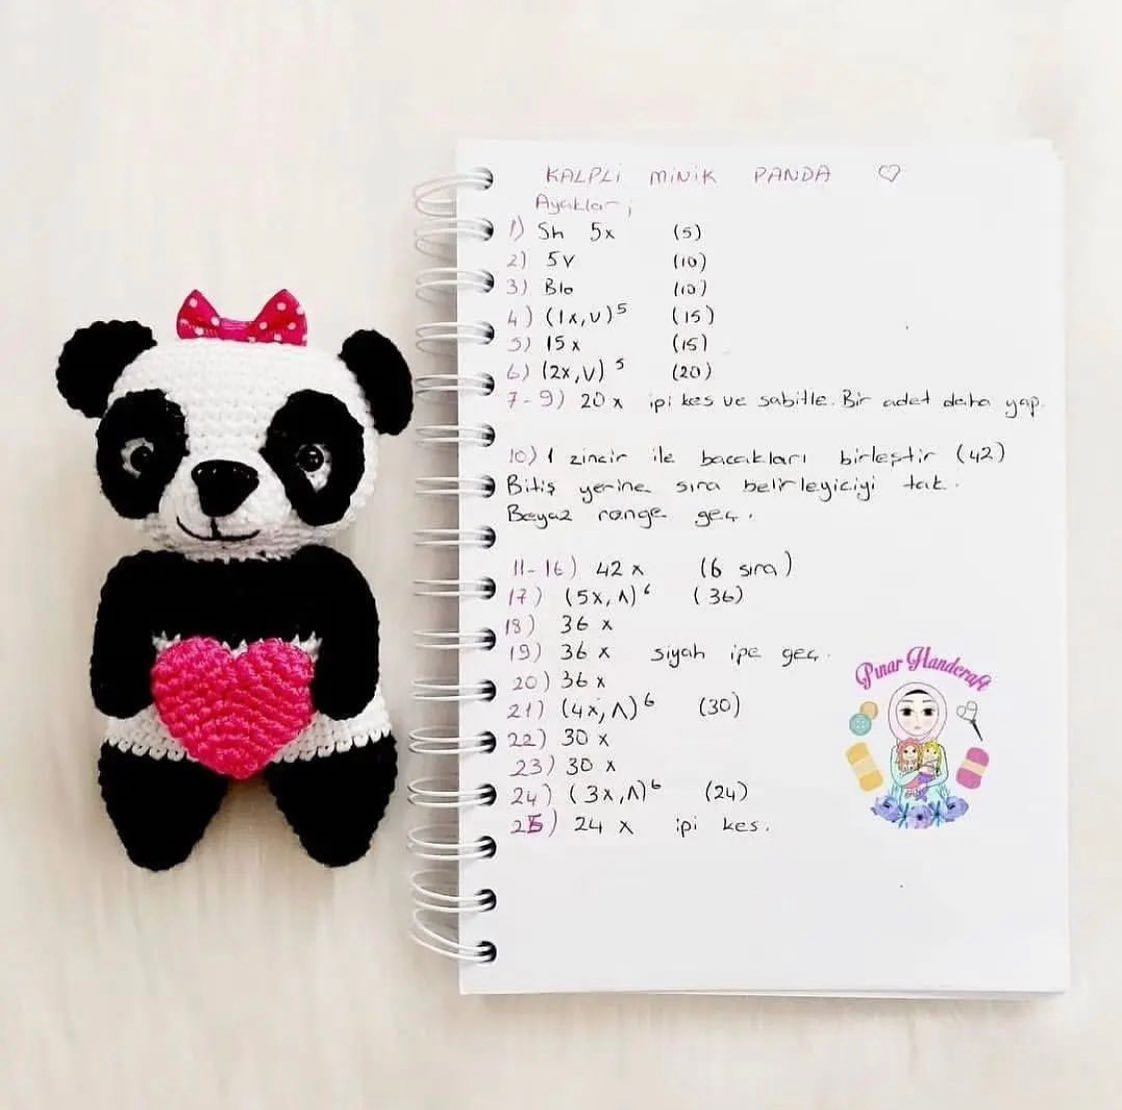 KALPLİ MİNİK PANDA ♡
Ayaklar;
1) Sh 5x (5)
2) 5V (10)
3) Blo (10)
4) (1x,V)⁵ (15)
5) 15x (15)
6) (2x,V)⁵ (20)
7-9) 20x ipi kes ve sabitle. Bir adet daha yap.
10) 1 zincir ile bacakları birleştir (42)
Bitiş yerine sıra belirleyiciyi tak.
Beyaz renge geç.
11-16) 42x (6 sıra)
17) (5x,Λ)⁶ (36)
18) 36x
19) 36x siyah ipe geç.
20) 36x
21) (4x,Λ)⁶ (30)
22) 30x
23) 30x
24) (3x,Λ)⁶ (24)
25) 24x ipi kes.
Pınar Handcraft